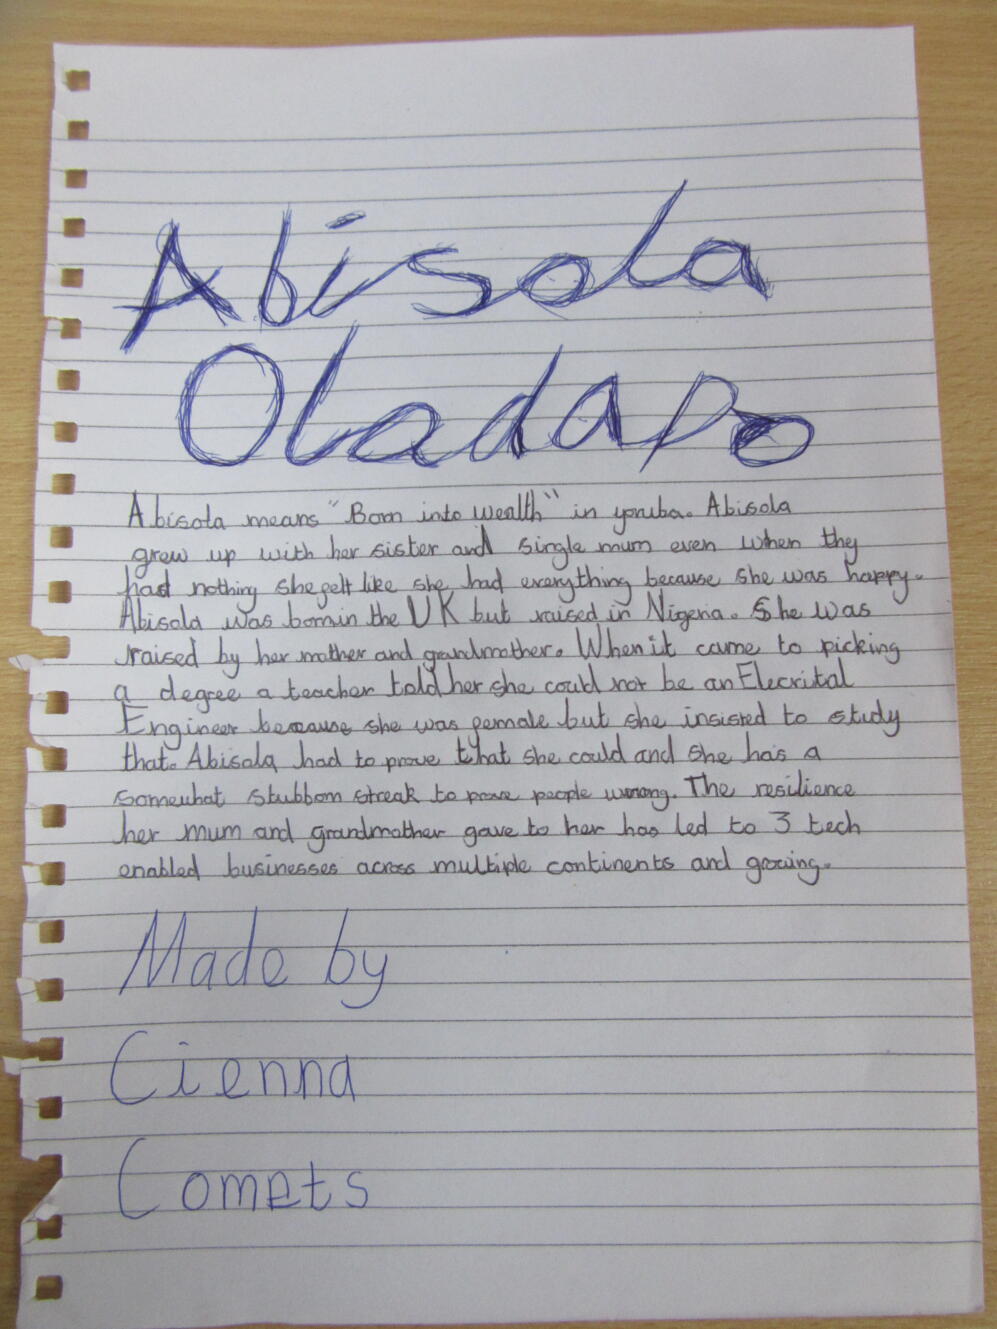 Abisola
Oladapo
Abisola means "Born into wealth" in yoruba. Abisola
grew up with her sister and single mum even when they
had nothing she felt like she had everything because she was happy.
Abisola was born in the UK but raised in Nigeria. She was
raised by her mother and grandmother. When it came to picking
a degree a teacher told her she could not be an Elecrital
Engineer because she was female but she insisted to study
that. Abisola had to prove that she could and she has a
somewhat stubborn streak to prove people wrong. The resilience
her mum and grandmother gave to her has led to 3 tech
enabled businesses across multiple continents and growing.
Made by
Cienna
Comets